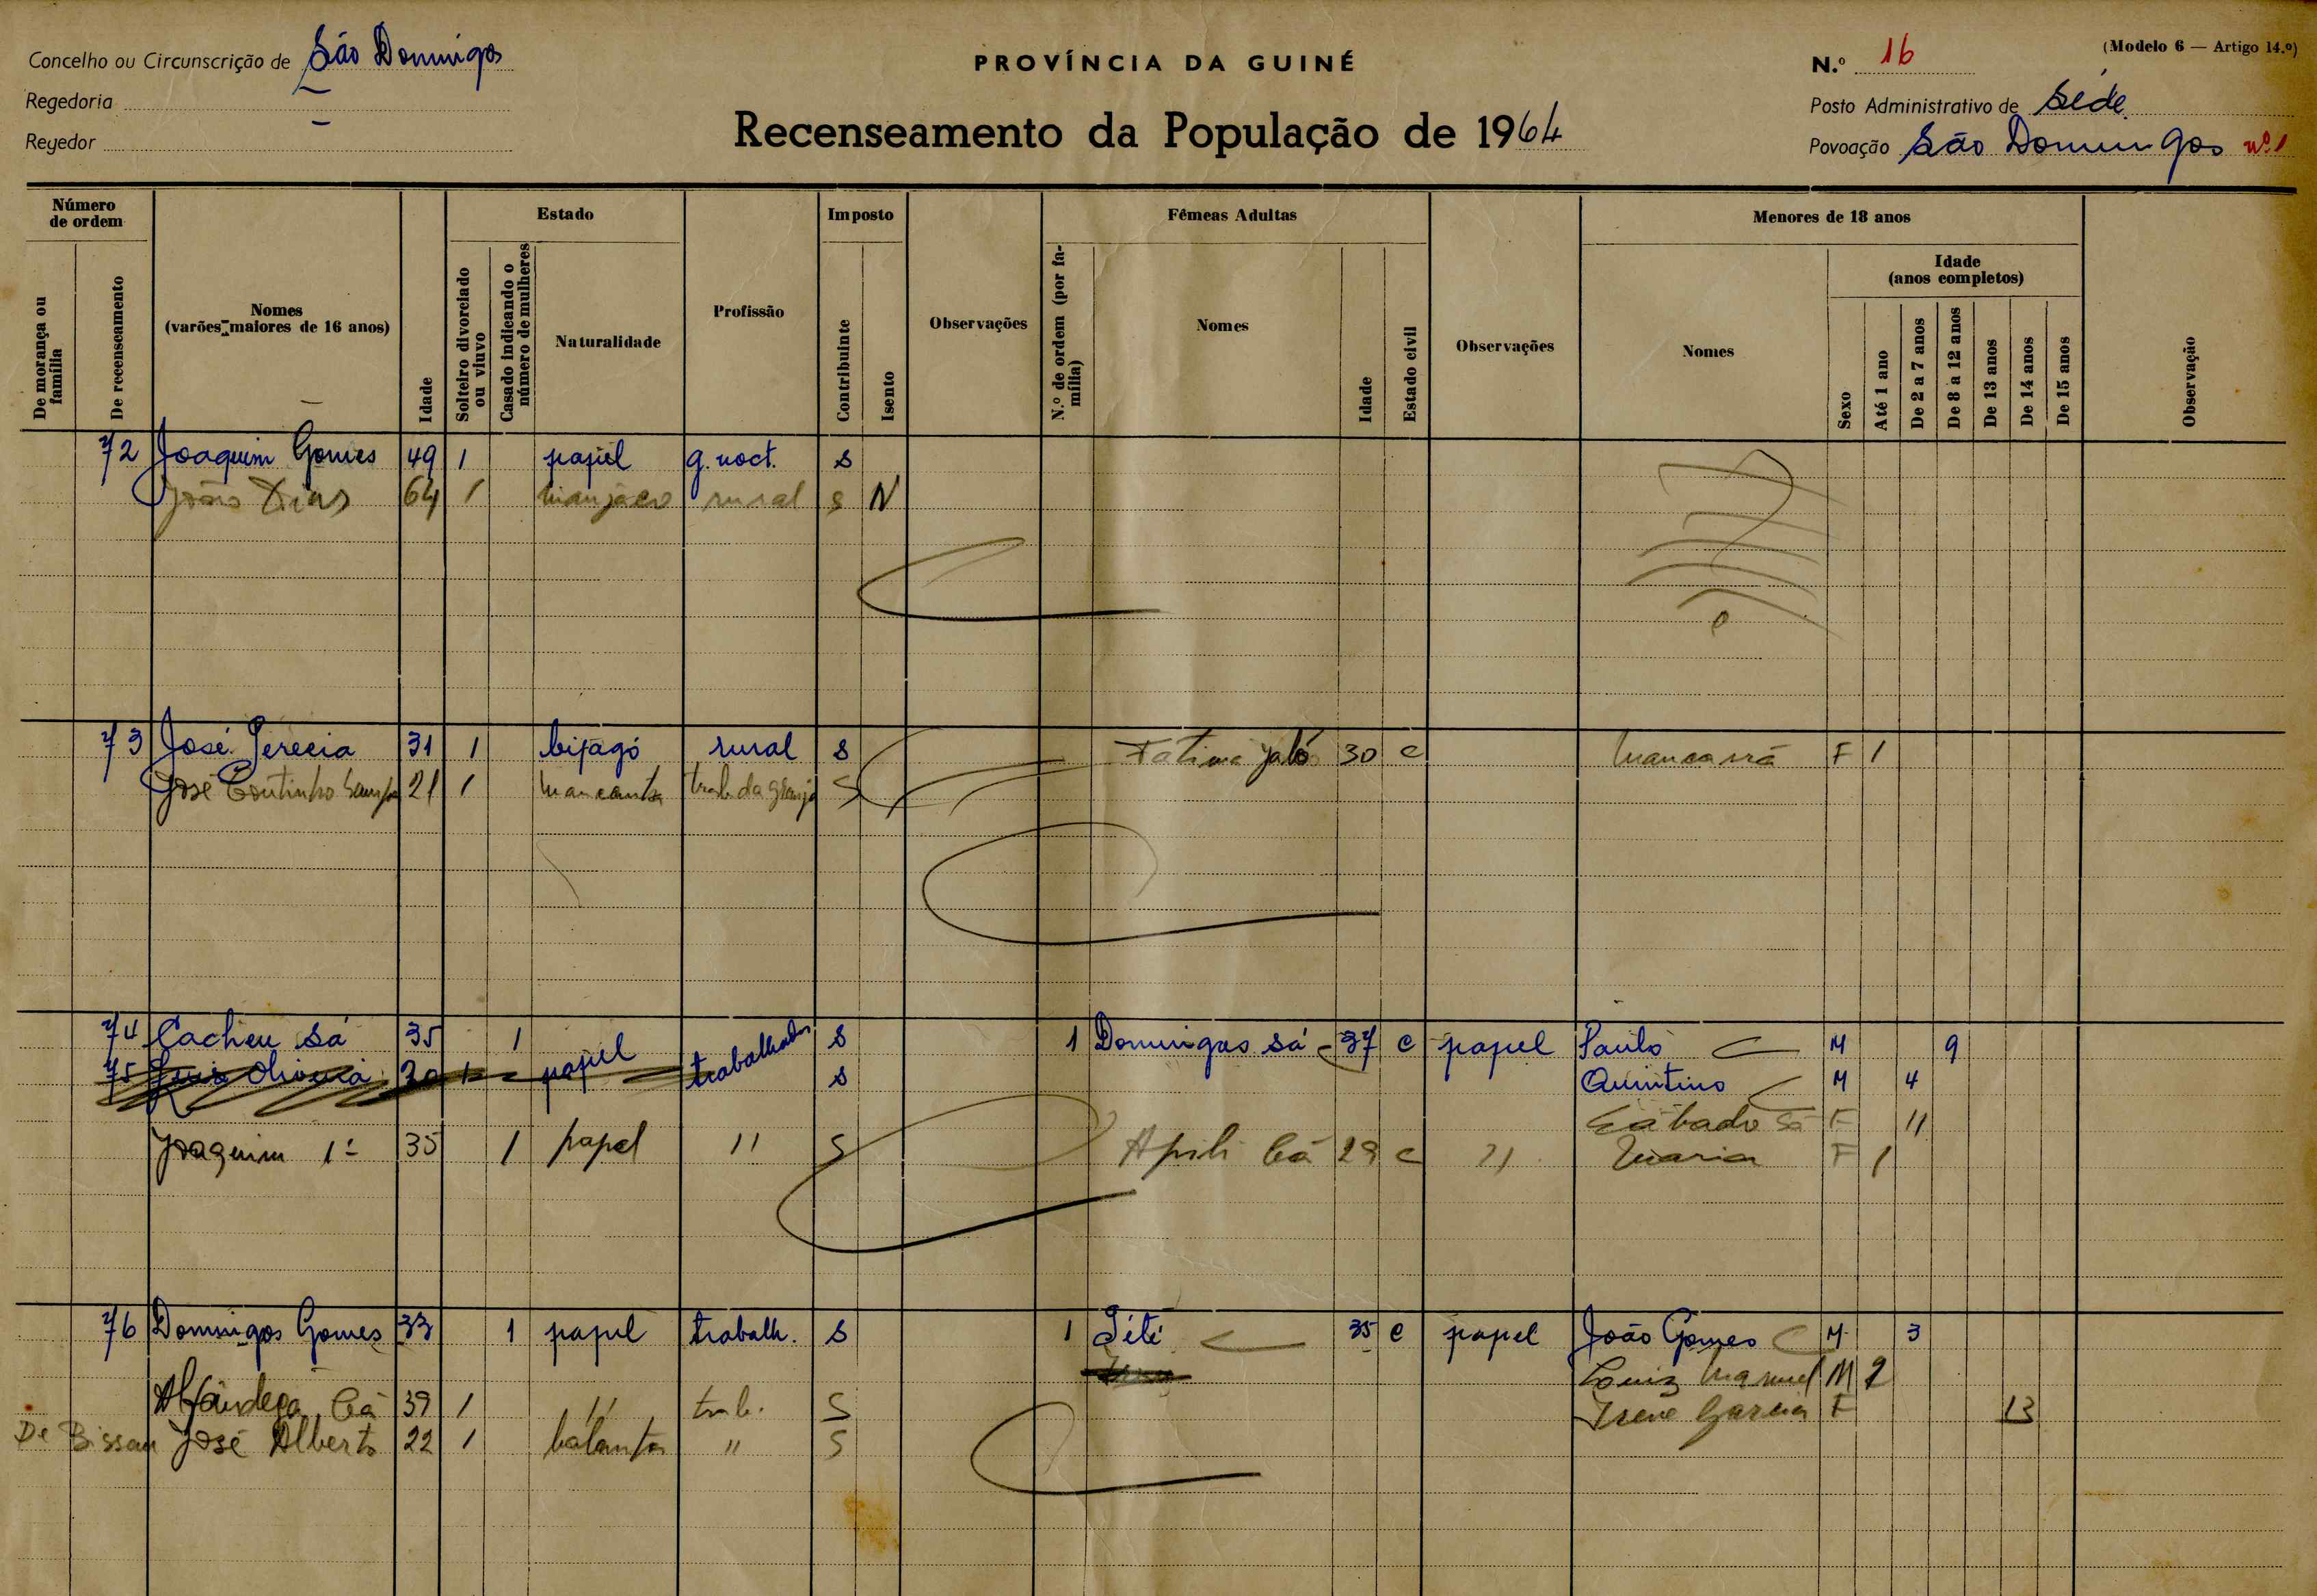 Concelho ou Circunscrição de São Domingos
Regedoria –
Regedor –
PROVÍNCIA DA GUINÉ
Recenseamento da População de 1964
(Modelo 6 — Artigo 14.º)
N.º 16
Posto Administrativo de Séde
Povoação São Domingos nº 1
Número de ordem
De morança ou família
De recenseamento
Nomes (varões maiores de 16 anos)
Idade
Estado
Solteiro divorciado ou viuvo
Casado indicando o número de mulheres
Naturalidade
Profissão
Imposto
Contribuinte
Isento
Observações
Fêmeas Adultas
N.º de ordem (por família)
Nomes
Idade
Estado civil
Observações
Menores de 18 anos
Nomes
Sexo
Idade (anos completos)
Até 1 ano
De 2 a 7 anos
De 8 a 12 anos
De 13 anos
De 14 anos
De 15 anos
Observação
72 Joaquim Gomes 49 1 papel g. noct. s
João Dias 64 1 manjaco rural s N
73 José 31 1 bijagó rural s Fatima Jaló 30 c F 1
José Coutinho 21 1 mancanha trab. da granja S
74 Cacheu Sá 35 1 papel trabalhador s 1 Domingas Sá 37 c papel Paulo M 9
75 Luis Oliveira 30 1 s Quintino M 4
Sábado Sá F 11
Joaquim 1º 35 1 papel " S Cá 29 c " Maria F 1
76 Domingos Gomes 33 1 papel trabalh. s 1 35 c papel João Gomes M 3
Luiz Manuel M 2
Alfândega Cá 39 1 " trab. S Irene Garcia F 13
De Bissau José Alberto 22 1 balanta " S